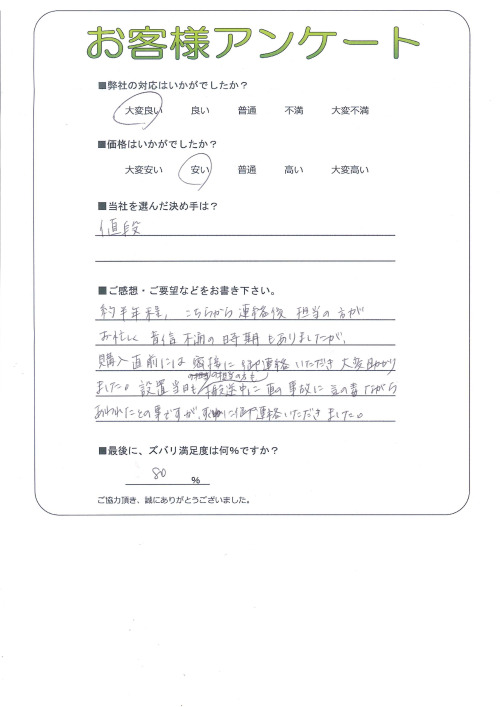 お客様アンケート
■弊社の対応はいかがでしたか？
大変良い 良い 普通 不満 大変不満
■価格はいかがでしたか？
大変安い 安い 普通 高い 大変高い
■当社を選んだ決め手は？
値段
■ご感想・ご要望などをお書き下さい。
約半年程、こちらから連絡後 担当の方が
お忙しく 音信不通の時期もありましたが、
購入直前には 密接に御連絡いただき 大変助かり
の担当の方も
ました。設置当日も 搬送中に 車の事故に お気の毒ながら
あわれたとの事ですが、 に御連絡いただきました。
■最後に、ズバリ満足度は何％ですか？
80 ％
ご協力頂き、誠にありがとうございました。